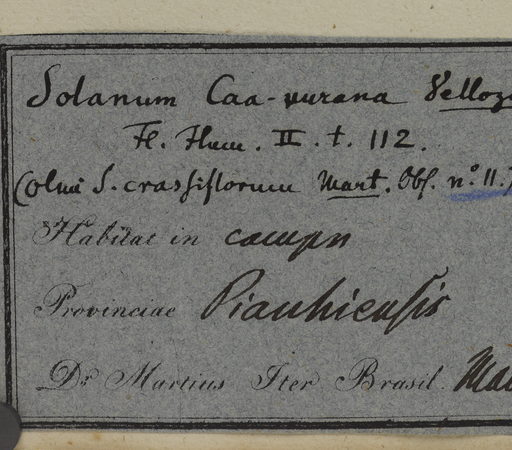 Solanum Caa-purana Velloz
Fl. Flum. II. t. 112.
(olim S. crassiflorum Mart. Obs. n.º 11.)
Habitat in campis
Provinciae Piauhiensis
Dr. Martius Iter Brasil.